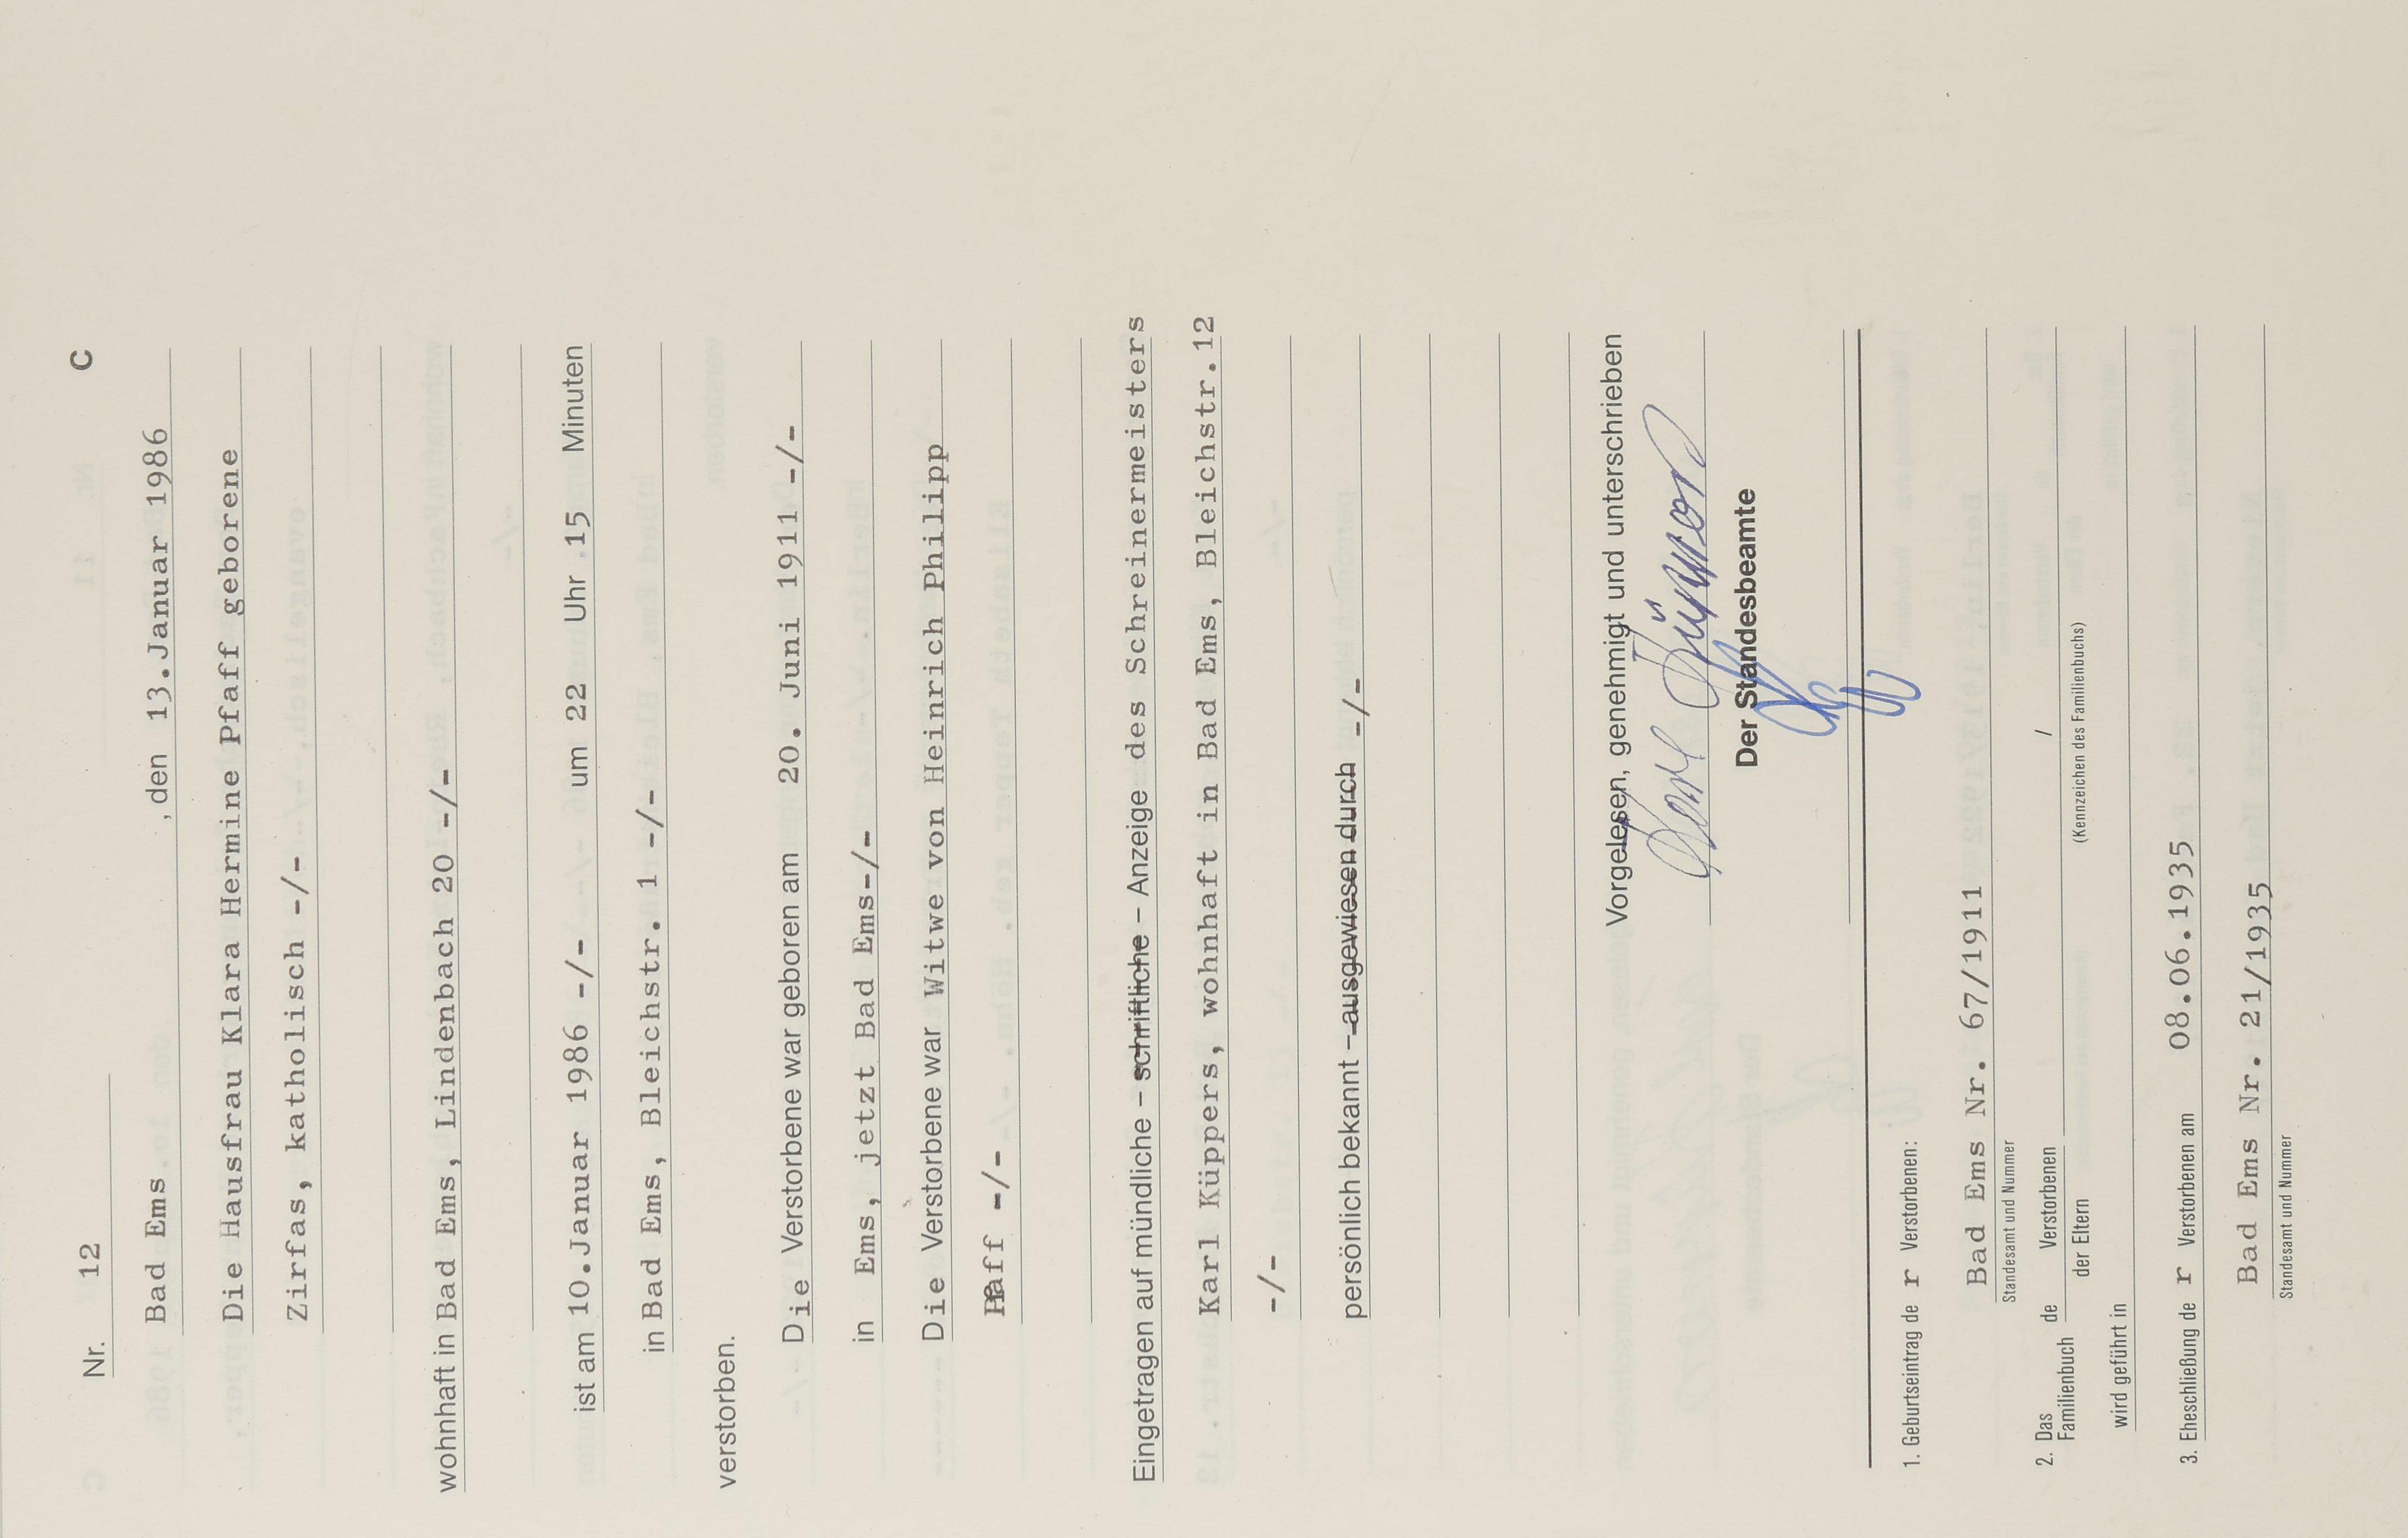 Nr. 12 C
Bad Ems , den 13.Januar 1986
Die Hausfrau Klara Hermine Pfaff geborene
Zirfas, katholisch -/-
wohnhaft in Bad Ems, Lindenbach 20 -/-
ist am 10.Januar 1986 -/- um 22 Uhr 15 Minuten
in Bad Ems, Bleichstr. 1 -/-
verstorben.
Die Verstorbene war geboren am 20. Juni 1911 -/-
in Ems, jetzt Bad Ems-/-
Die Verstorbene war Witwe von Heinrich Philipp
Pfaff -/-
Eingetragen auf mündliche – schriftliche – Anzeige des Schreinermeisters
Karl Küppers, wohnhaft in Bad Ems, Bleichstr.12
-/-
persönlich bekannt – ausgewiesen durch -/-
Vorgelesen, genehmigt und unterschrieben
Karl Küppers
Der Standesbeamte
1. Geburtseintrag de r Verstorbenen:
Bad Ems Nr. 67/1911
Standesamt und Nummer
2. Das Familienbuch de Verstorbenen /
der Eltern (Kennzeichen des Familienbuchs)
wird geführt in
3. Eheschließung de r Verstorbenen am 08.06.1935
Bad Ems Nr. 21/1935
Standesamt und Nummer